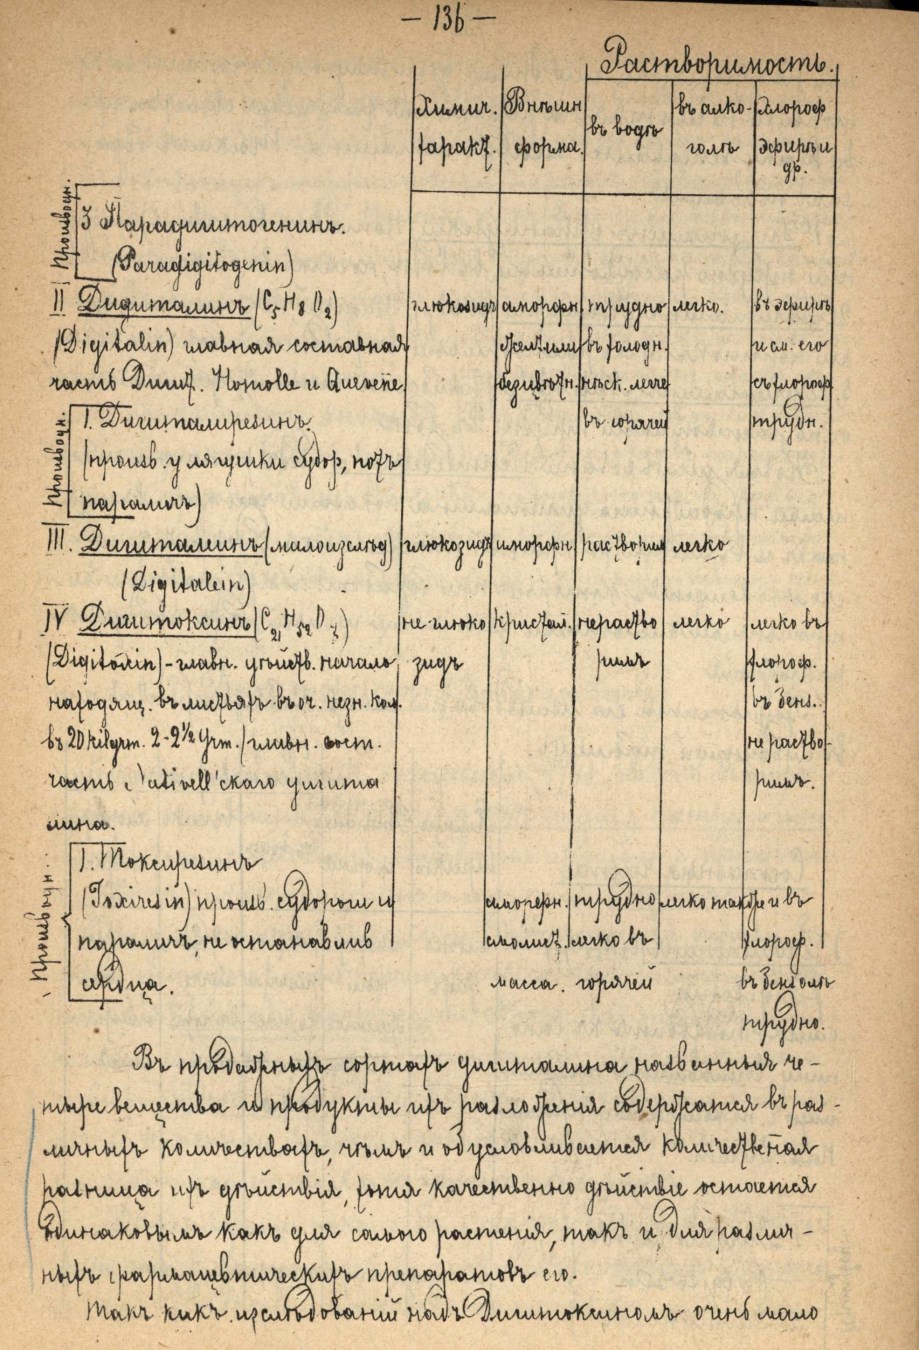 — 136 —
Растворимость.
Химич. Внѣшн въ водѣ въ алко- Хлороф
характ. форма. голѣ эфирѣ и
др.
Производн.
3 Парадигитогенинъ.
(Paradigitogenin)
II Дигиталинъ (C5 H8 O2) глюкозидъ аморфн. трудно легко. въ эфирѣ
(Digitalin) главная составная желт. или въ холодн. и см. его
часть Дигит. Homolle и Quevenne безцвѣтн. нѣск. легче съ хлороф
Производн.
1. Дигиталирезинъ. въ горячей трудн.
(произв. у лягушки судор, потъ
параличъ)
III. Дигиталеинъ (малоизслѣд) глюкозидъ аморфн. растворим легко
(Digitalein)
IV Дигитоксинъ (C21 H32 O7) не глюко кристал. нераство легко легко въ
(Digitoxin) - главн. дѣйств. начало зидъ римъ хлороф.
находящ. въ листьяхъ въ оч. незн. кол. въ бенз.
въ 20 kilgrm. 2-2½ grm./главн. сост. не раство-
часть Nativell'скаго дигита римъ.
лина.
Производн.
1. Токсирезинъ
(Toxiresin) произв. судороги и аморфн. трудно легко также и въ
параличъ, не останавлив смолист. легко въ хлороф.
сердца. масса. горячей въ бензолѣ
трудно.
Въ продажныхъ сортахъ дигиталина названныя че-
тыре вещества и продукты ихъ разложенія содержатся въ раз-
личныхъ количествахъ, чѣмъ и обусловливается количественная
разница ихъ дѣйствія, хотя качественно дѣйствіе остается
одинаковымъ какъ для самого растенія, такъ и для различ-
ныхъ фармацевтическихъ препаратовъ его.
Такъ какъ изслѣдованій надъ Дигитоксиномъ очень мало